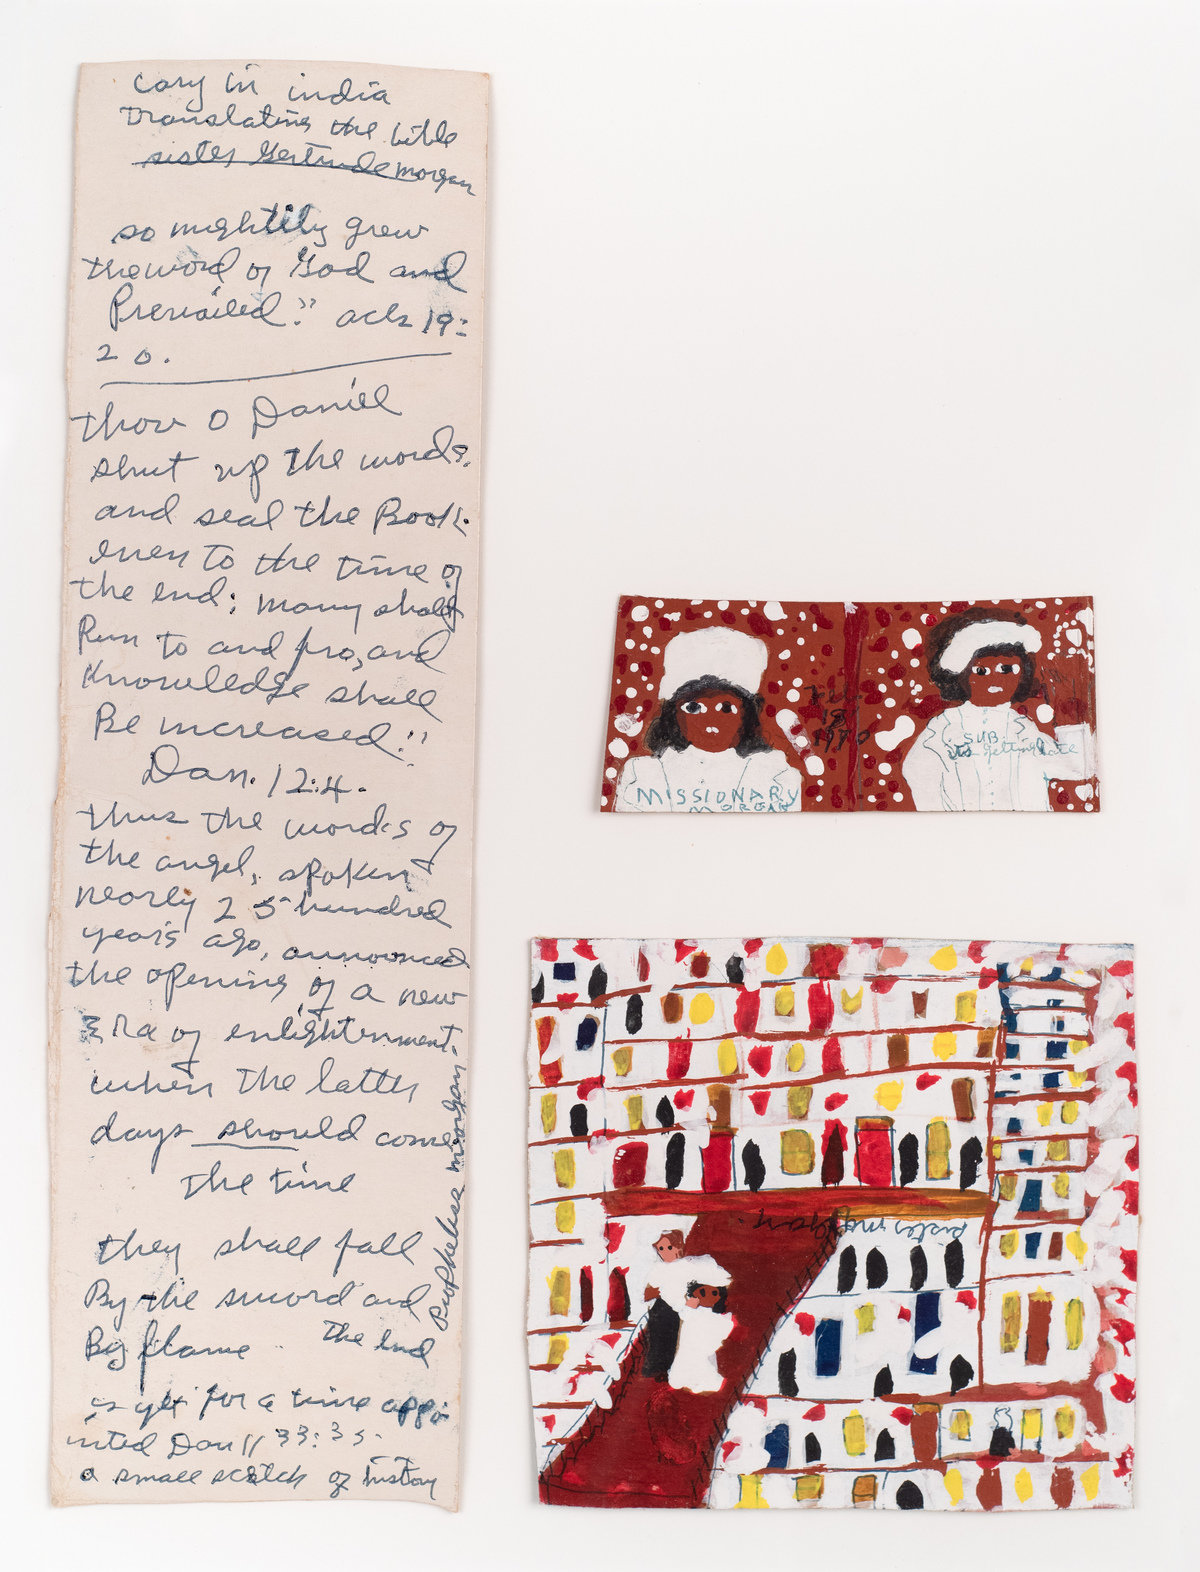 cary in india
Translating the bible
sister Gertrude morgan
so mightily grew
the word of God and
Prevailed." acts 19:
20.
thou O Daniel
shut up the words,
and seal the Book.
even to the time of
the end; many shall
Run to and fro, and
Knowledge shall
Be increased."
Dan. 12:4.
thus the words of
the angel, spoken
nearly 25 hundred
years ago, announced
the opening of a new
Era of enlightenment.
when the latter
days should come
the time
they shall fall
By the sword and
By flame the end
is yet for a time appo
inted Dan 11 33:35.
a small scetch of history
Prophetess morgan.
MISSIONARY
MORGAN
1970
SUB.
its getting late
sister morgan.